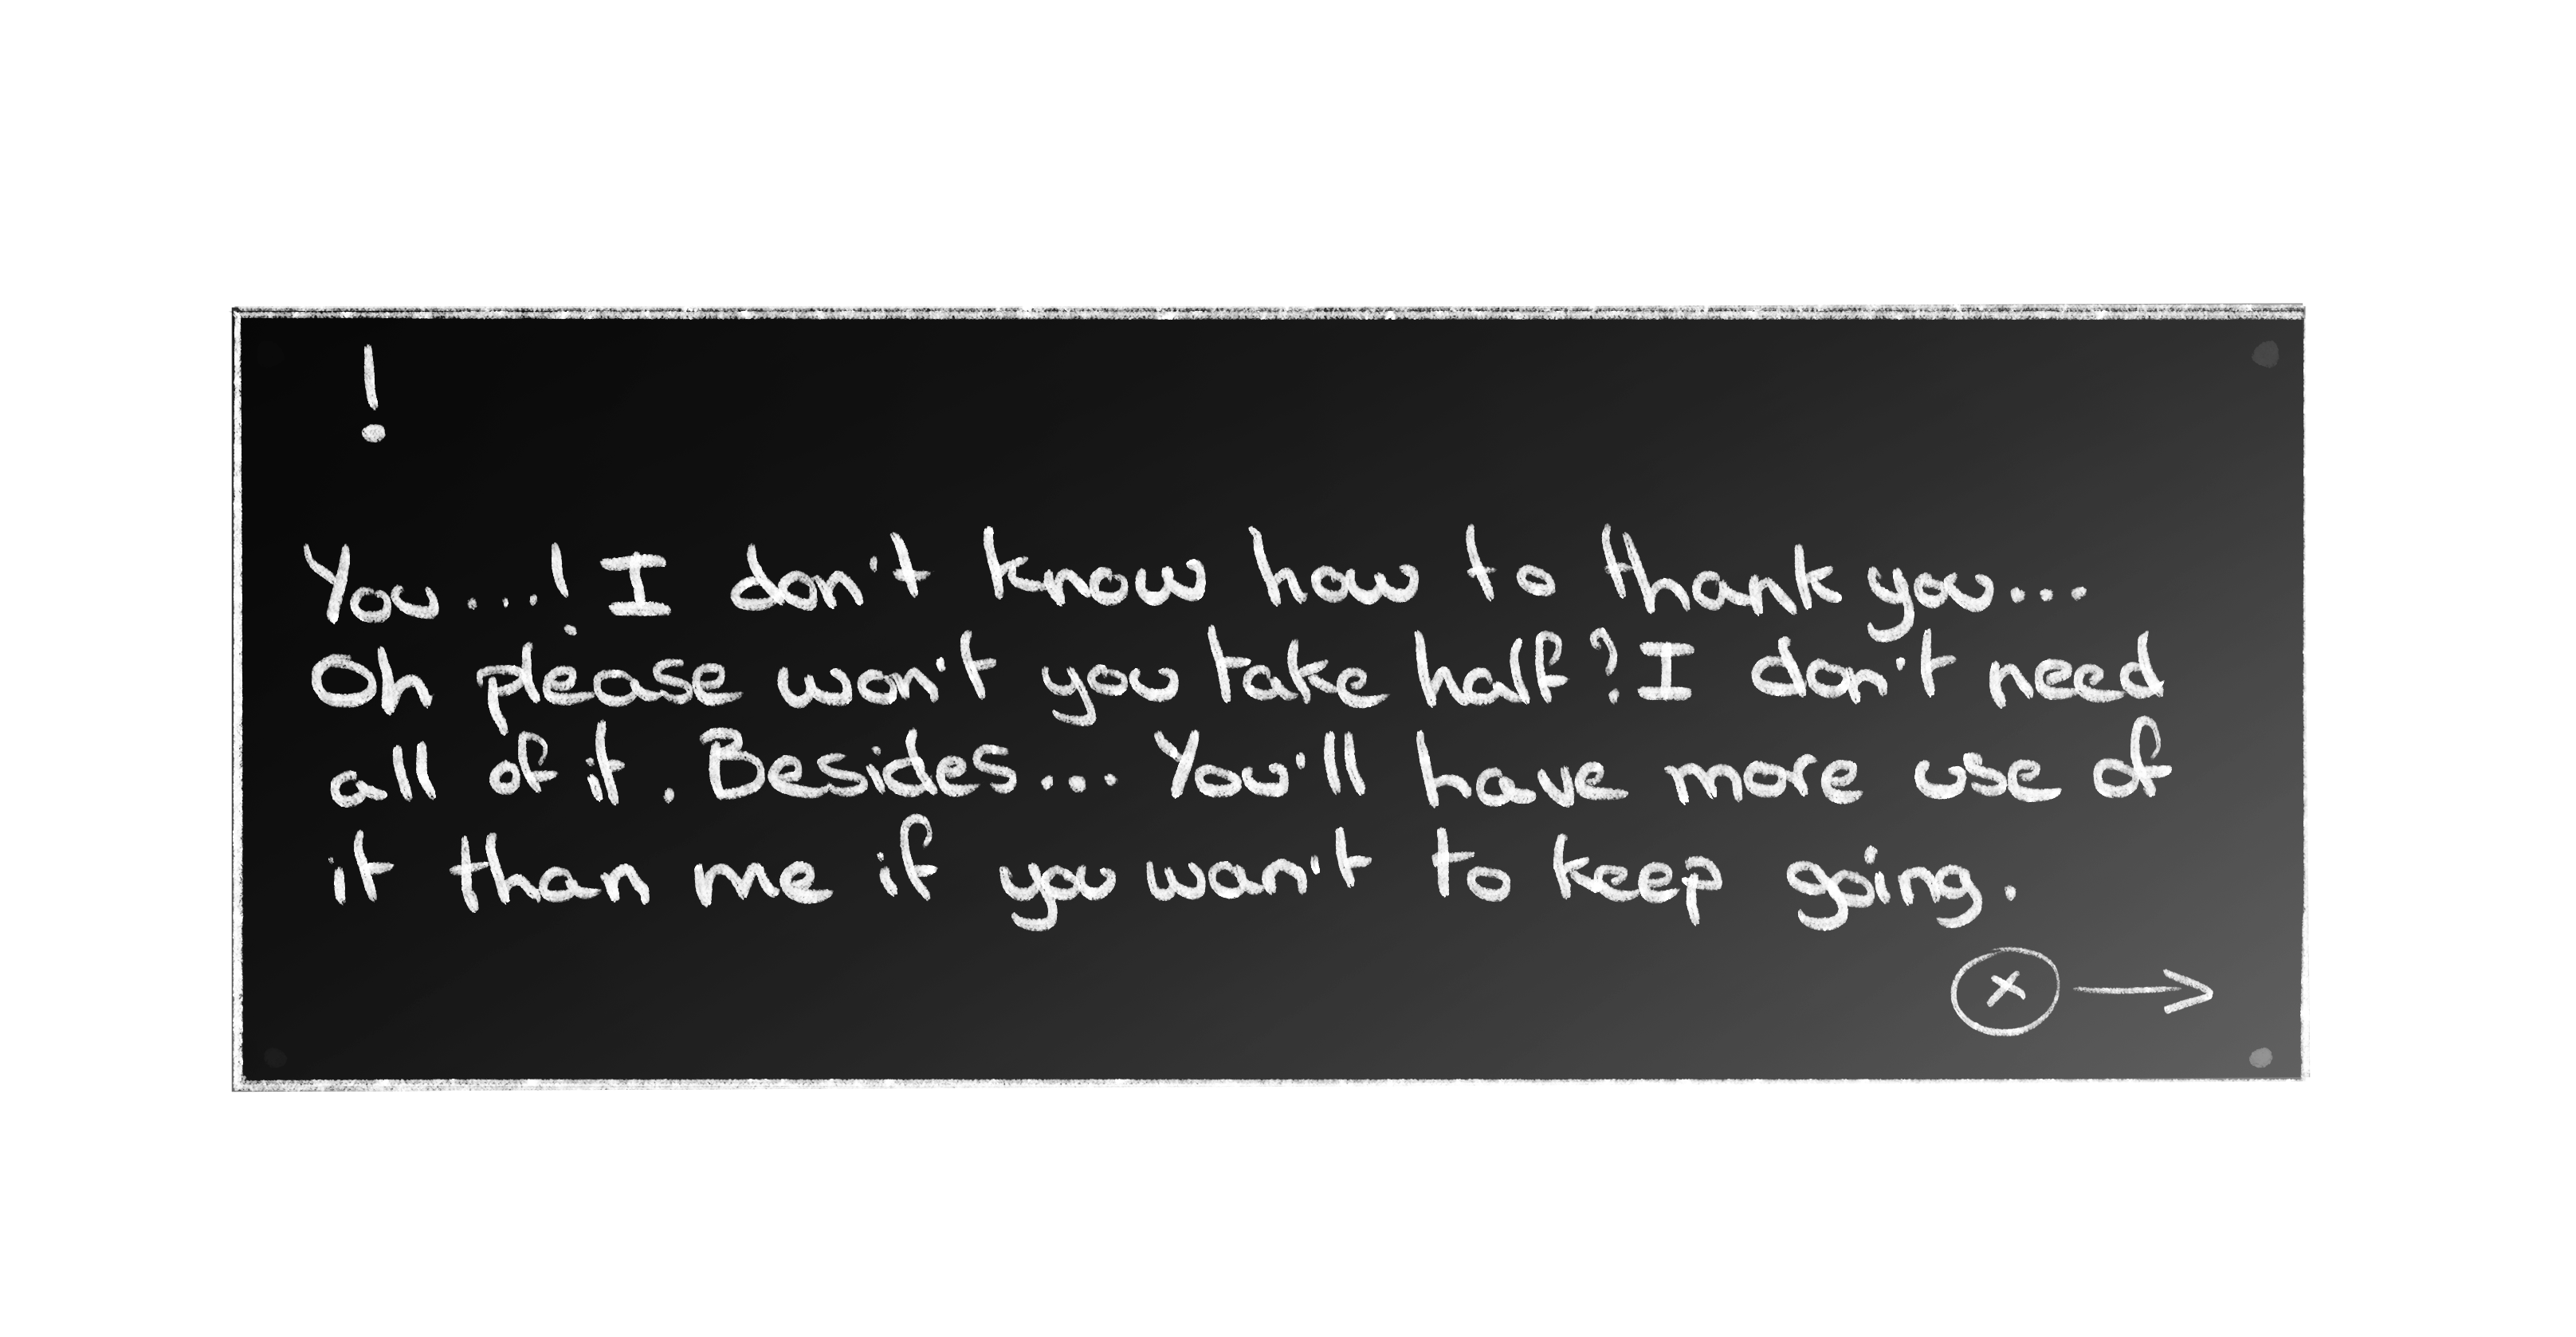 !
You...! I don't know how to thank you...
Oh please won't you take half? I don't need
all of it. Besides... You'll have more use of
it than me if you wan't to keep going.
X →